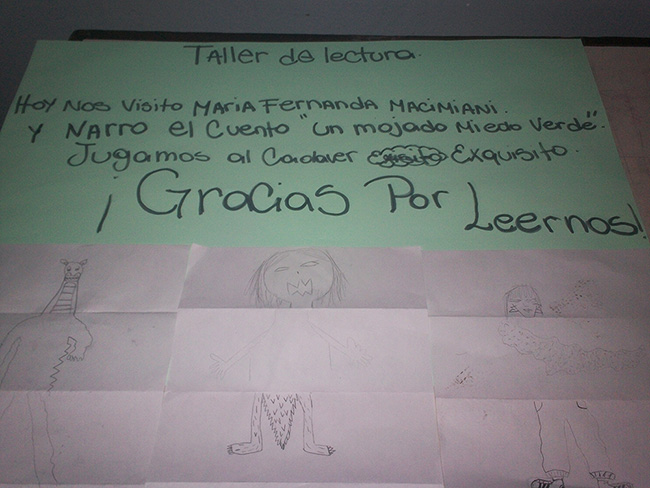 Taller de lectura.
Hoy Nos Visito MARIA FERNANDA MACIMIANI.
Y NARRO el Cuento "un mojado Miedo Verde".
Jugamos al Cadaver Exquisito.
¡Gracias Por Leernos!